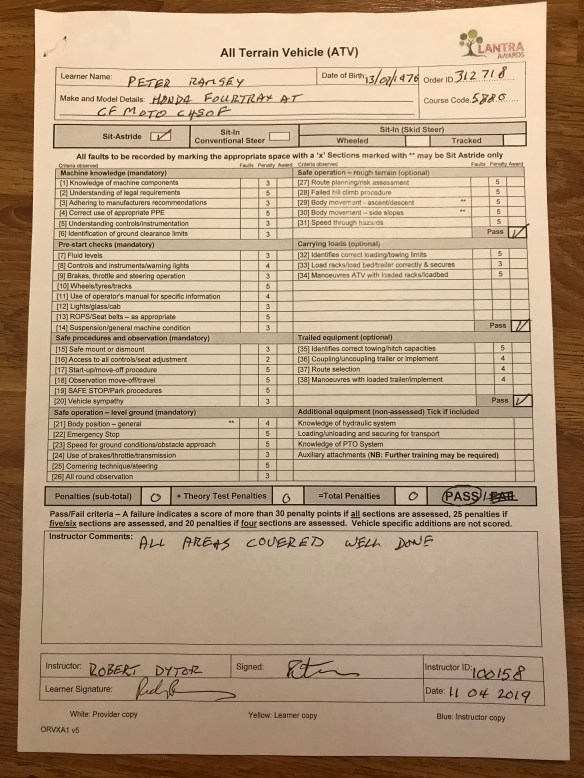 All Terrain Vehicle (ATV)
LANTRA
AWARDS
Learner Name: PETER RAMSEY Date of Birth 13/07/1976 Order ID 312718
Make and Model Details: HONDA FOURTRAX AT
CF MOTO Course Code. 5880
Sit-Astride ✓ Sit-In Conventional Steer Sit-In (Skid Steer)
Wheeled Tracked
All faults to be recorded by marking the appropriate space with a 'x' Sections marked with ** may be Sit Astride only
Criteria observed Faults Penalty Award Criteria observed Faults Penalty Award
Machine knowledge (mandatory)
[1] Knowledge of machine components 3
[2] Understanding of legal requirements 5
[3] Adhering to manufacturers recommendations 3
[4] Correct use of appropriate PPE 5
[5] Understanding controls/instrumentation 3
[6] Identification of ground clearance limits 3
Pre-start checks (mandatory)
[7] Fluid levels 3
[8] Controls and instruments/warning lights 4
[9] Brakes, throttle and steering operation 3
[10] Wheels/tyres/tracks 5
[11] Use of operator's manual for specific information 4
[12] Lights/glass/cab 3
[13] ROPS/Seat belts – as appropriate 5
[14] Suspension/general machine condition 3
Safe procedures and observation (mandatory)
[15] Safe mount or dismount 3
[16] Access to all controls/seat adjustment 2
[17] Start-up/move-off procedure 5
[18] Observation move-off/travel 5
[19] SAFE STOP/Park procedures 5
[20] Vehicle sympathy 3
Safe operation – level ground (mandatory)
[21] Body position – general ** 4
[22] Emergency Stop 5
[23] Speed for ground conditions/obstacle approach 5
[24] Use of brakes/throttle/transmission 3
[25] Cornering technique/steering 5
[26] All round observation 3
Safe operation – rough terrain (optional)
[27] Route planning/risk assessment 5
[28] Failed hill climb procedure 5
[29] Body movement - ascent/descent ** 5
[30] Body movement – side slopes ** 5
[31] Speed through hazards 5
Pass ✓
Carrying loads (optional)
[32] Identifies correct loading/towing limits 5
[33] Load racks/load bed/trailer correctly & secures 3
[34] Manoeuvres ATV with loaded racks/loadbed 5
Pass ✓
Trailed equipment (optional)
[35] Identifies correct towing/hitch capacities 5
[36] Coupling/uncoupling trailer or implement 4
[37] Route selection 4
[38] Manoeuvres with loaded trailer/implement 4
Pass ✓
Additional equipment (non-assessed) Tick if included
Knowledge of hydraulic system
Loading/unloading and securing for transport
Knowledge of PTO System
Auxiliary attachments (NB: Further training may be required)
Penalties (sub-total) 0 + Theory Test Penalties 0 =Total Penalties 0 PASS / FAIL
Pass/Fail criteria – A failure indicates a score of more than 30 penalty points if all sections are assessed, 25 penalties if
five/six sections are assessed, and 20 penalties if four sections are assessed. Vehicle specific additions are not scored.
Instructor Comments: ALL AREAS COVERED WELL DONE
Instructor: ROBERT DYTOR Signed: Instructor ID: 100158
Learner Signature: Date: 11 04 2019
White: Provider copy Yellow: Learner copy Blue: Instructor copy
ORVXA1 v5